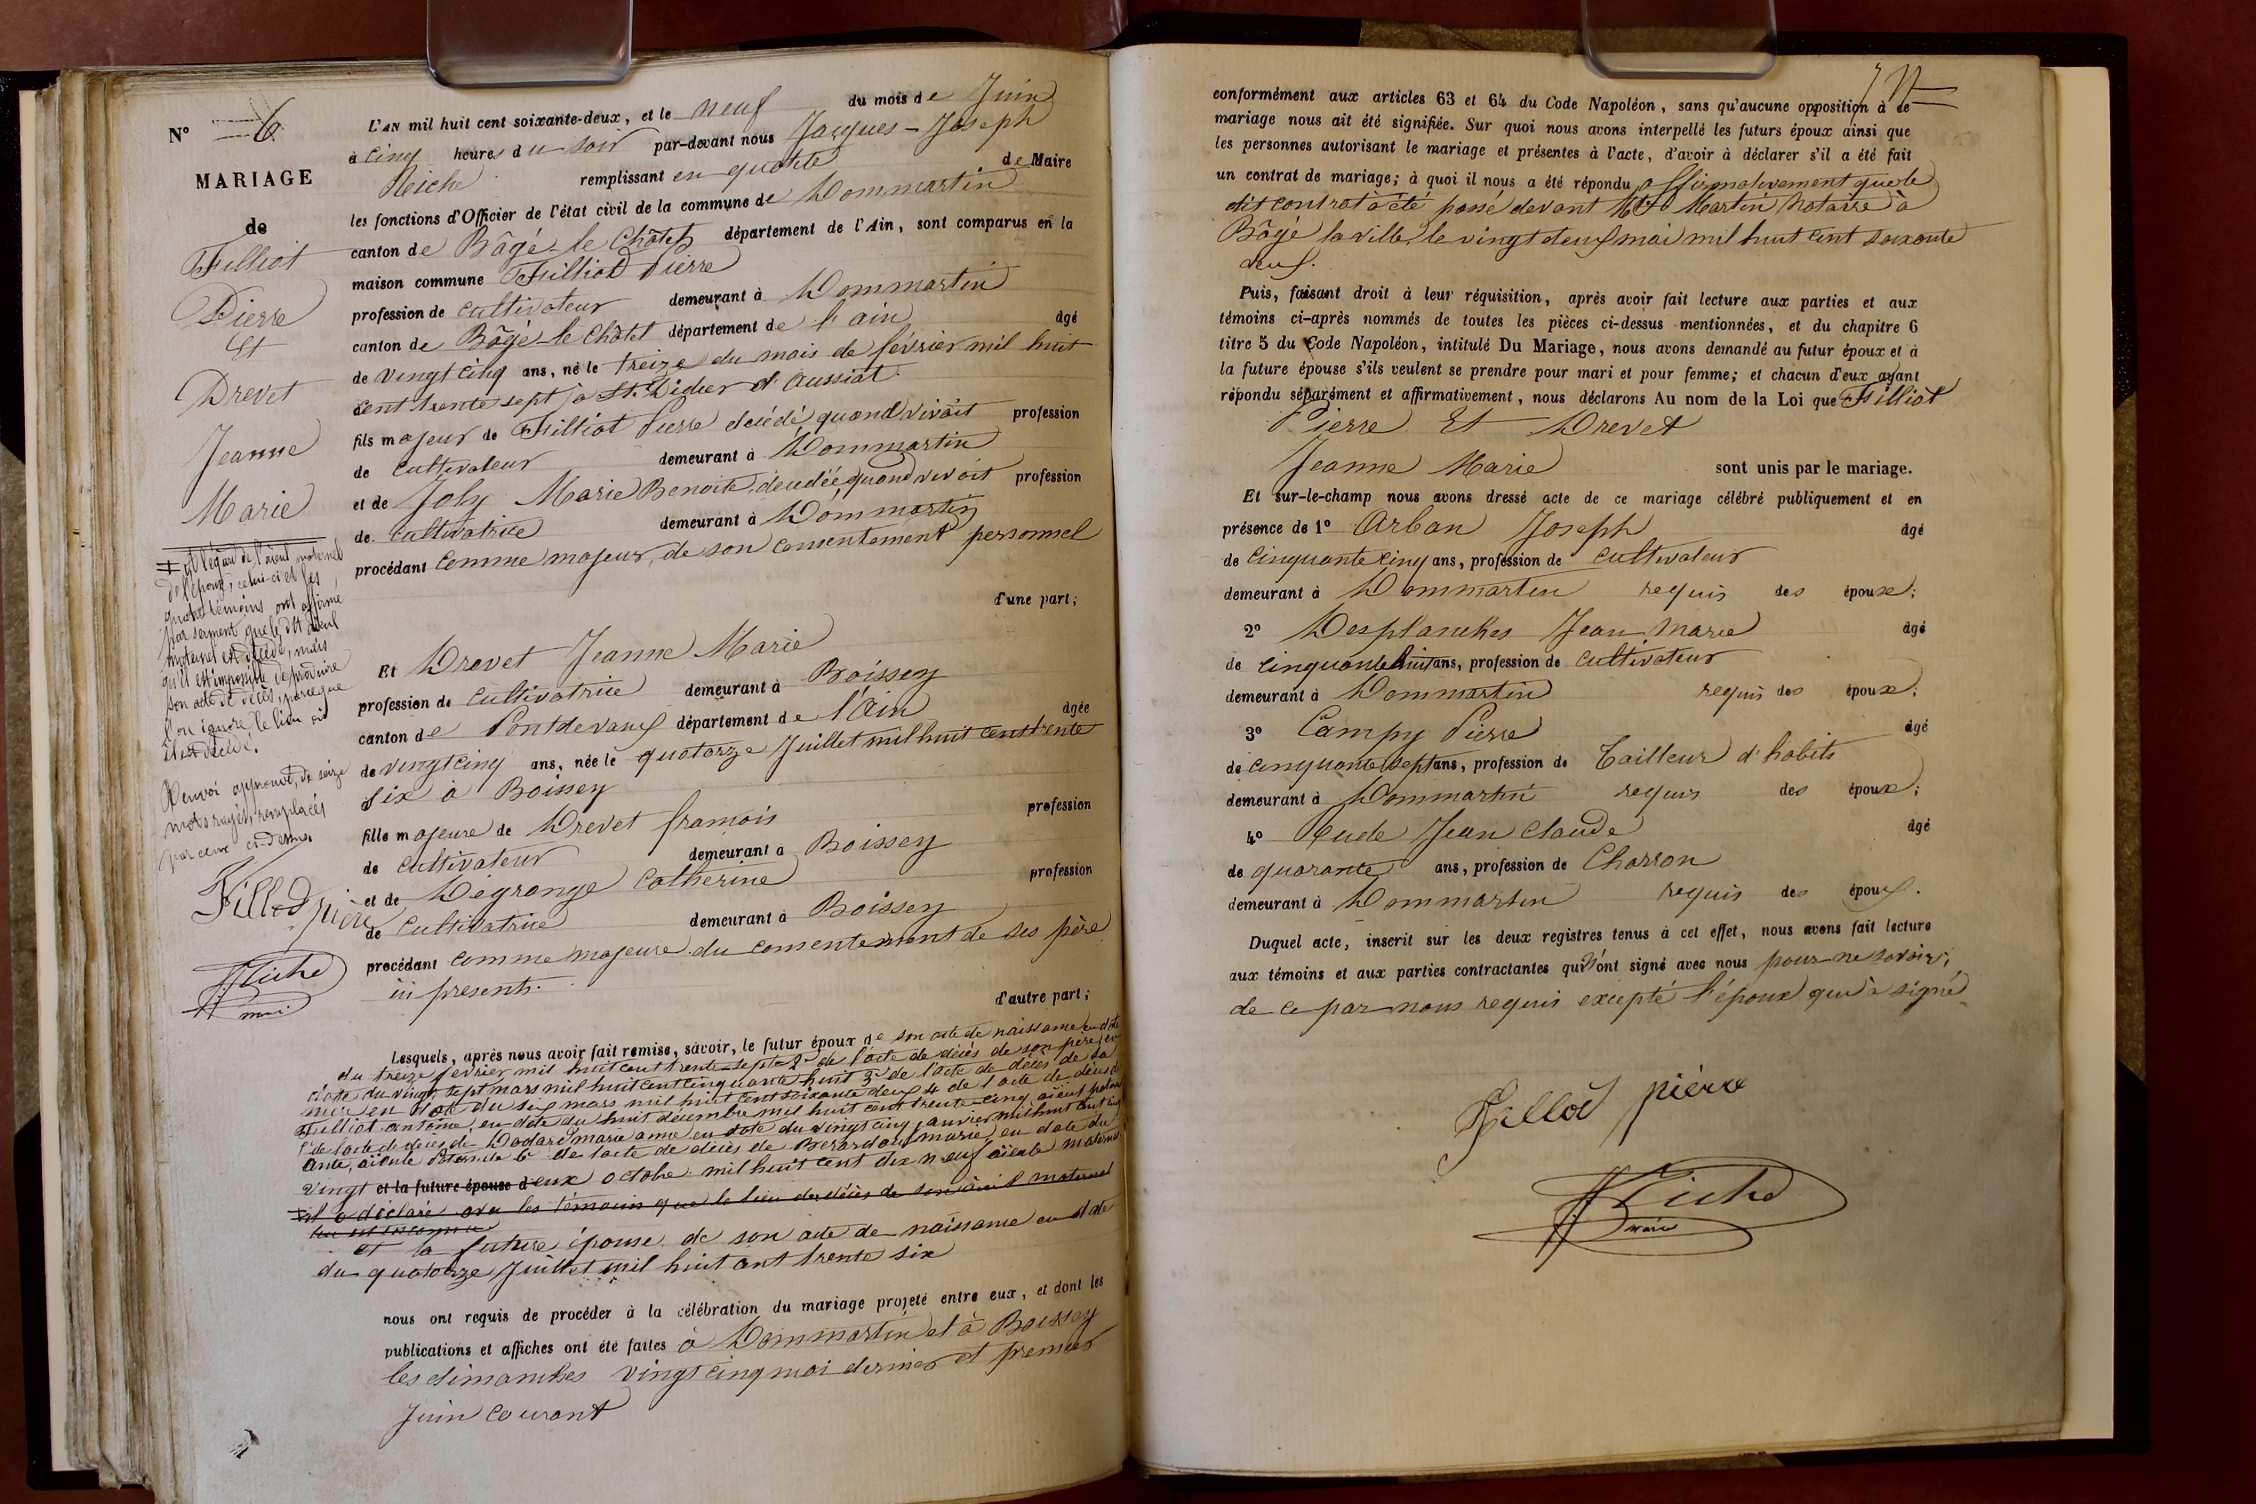 N° 6
MARIAGE
de
Filliot
Pierre
Et
Drevet
Jeanne
Marie
‡ à l'égard de l'aïeul maternel
de l'époux, celui-ci et les
quatre témoins ont affirmé
par serment que le dit aïeul
maternel est décédé, mais
qu'il est impossible de produire
son acte de décès, parceque
l'on ignore le lieu où
il est décédé.
Renvoi approuvé, de seize
mots rayés, remplacés
par ceux ci-dessus
Fillod pière
Riche
maire
L'AN mil huit cent soixante-deux, et le neuf du mois de Juin
à cinq heures du soir par-devant nous Jacques-Joseph
Riche remplissant en qualité de Maire
les fonctions d'Officier de l'état civil de la commune de Dommartin
canton de Bâgé-le-Châtel département de l'Ain, sont comparus en la
maison commune Filliot Pierre
profession de cultivateur demeurant à Dommartin
canton de Bâgé-le-Châtel département de l'ain âgé
de vingt cinq ans, né le treize du mois de février mil huit
cent trente sept à St. Didier d'aussiat
fils majeur de Filliot Pierre décédé quand vivait profession
de cultivateur demeurant à Dommartin
et de Joly Marie Benoite, décédée quand vivait profession
de cultivatrice demeurant à Dommartin
procédant comme majeur, de son consentement personnel
d'une part;
Et Drevet Jeanne Marie
profession de cultivatrice demeurant à Boissey
canton de Pontdevaux département de l'Ain âgée
de vingt cinq ans, née le quatorze Juillet mil huit cent trente
six à Boissey
fille majeure de Drevet françois profession
de cultivateur demeurant à Boissey
et de Dégrange Catherine profession
de cultivatrice demeurant à Boissey
procédant comme majeure du consentement de ses père
ici présents.
d'autre part;
Lesquels, après nous avoir fait remise, savoir, le futur époux de son acte de naissance en date
du treize février mil huit cent trente-sept 2° de l'acte de décès de son père, en
date du vingt sept mars mil huit cent cinquante huit 3° de l'acte de décès de sa
mère en date du six mars mil huit cent soixante deux 4° de l'acte de décès de
Filliot antoine, en date du huit décembre mil huit cent trente-cinq aïeul paternel
5° de l'acte de décès de marie anne en date du vingt cinq janvier mil huit cent
aïeule Paternelle 6° de l'acte de décès de marie en date du
vingt et la future épouse deux octobre mil huit cent dix neuf aïeule maternelle
‡ il a déclaré avec les témoins que le lieu du décès de son aïeul maternel
lui est inconnu
et la future épouse de son acte de naissance en date
du quatorze Juillet mil huit cent trente six
nous ont requis de procéder à la célébration du mariage projeté entre eux, et dont les
publications et affiches ont été faites à Dommartin et à Boissey
les dimanches vingt cinq mai dernier et premier
Juin courant
conformément aux articles 63 et 64 du Code Napoléon, sans qu'aucune opposition à ce
mariage nous ait été signifiée. Sur quoi nous avons interpellé les futurs époux ainsi que
les personnes autorisant le mariage et présentes à l'acte, d'avoir à déclarer s'il a été fait
un contrat de mariage; à quoi il nous a été répondu affirmativement que le
dit contrat à été passé devant Martin Notaire à
Bâgé la ville, le vingt deux mai mil huit cent soixante
deux.
Puis, faisant droit à leur réquisition, après avoir fait lecture aux parties et aux
témoins ci-après nommés de toutes les pièces ci-dessus mentionnées, et du chapitre 6
titre 5 du Code Napoléon, intitulé Du Mariage, nous avons demandé au futur époux et à
la future épouse s'ils veulent se prendre pour mari et pour femme; et chacun d'eux ayant
répondu séparément et affirmativement, nous déclarons Au nom de la Loi que Filliot
Pierre Et Drevet
Jeanne Marie sont unis par le mariage.
Et sur-le-champ nous avons dressé acte de ce mariage célébré publiquement et en
présence de 1° Arban Joseph âgé
de cinquante cinq ans, profession de cultivateur
demeurant à Dommartin requis des époux;
2° Desplanches Jean Marie âgé
de cinquante huit ans, profession de cultivateur
demeurant à Dommartin requis des époux;
3° Campy Pierre âgé
de cinquante sept ans, profession de Tailleur d'habits
demeurant à Dommartin requis des époux;
4° Jean Claude âgé
de quarante ans, profession de Charron
demeurant à Dommartin requis des époux.
Duquel acte, inscrit sur les deux registres tenus à cet effet, nous avons fait lecture
aux témoins et aux parties contractantes qui n'ont signé avec nous pour ne savoir,
de ce par nous requis excepté l'époux qui à signé
Fillod pière
Riche
maire